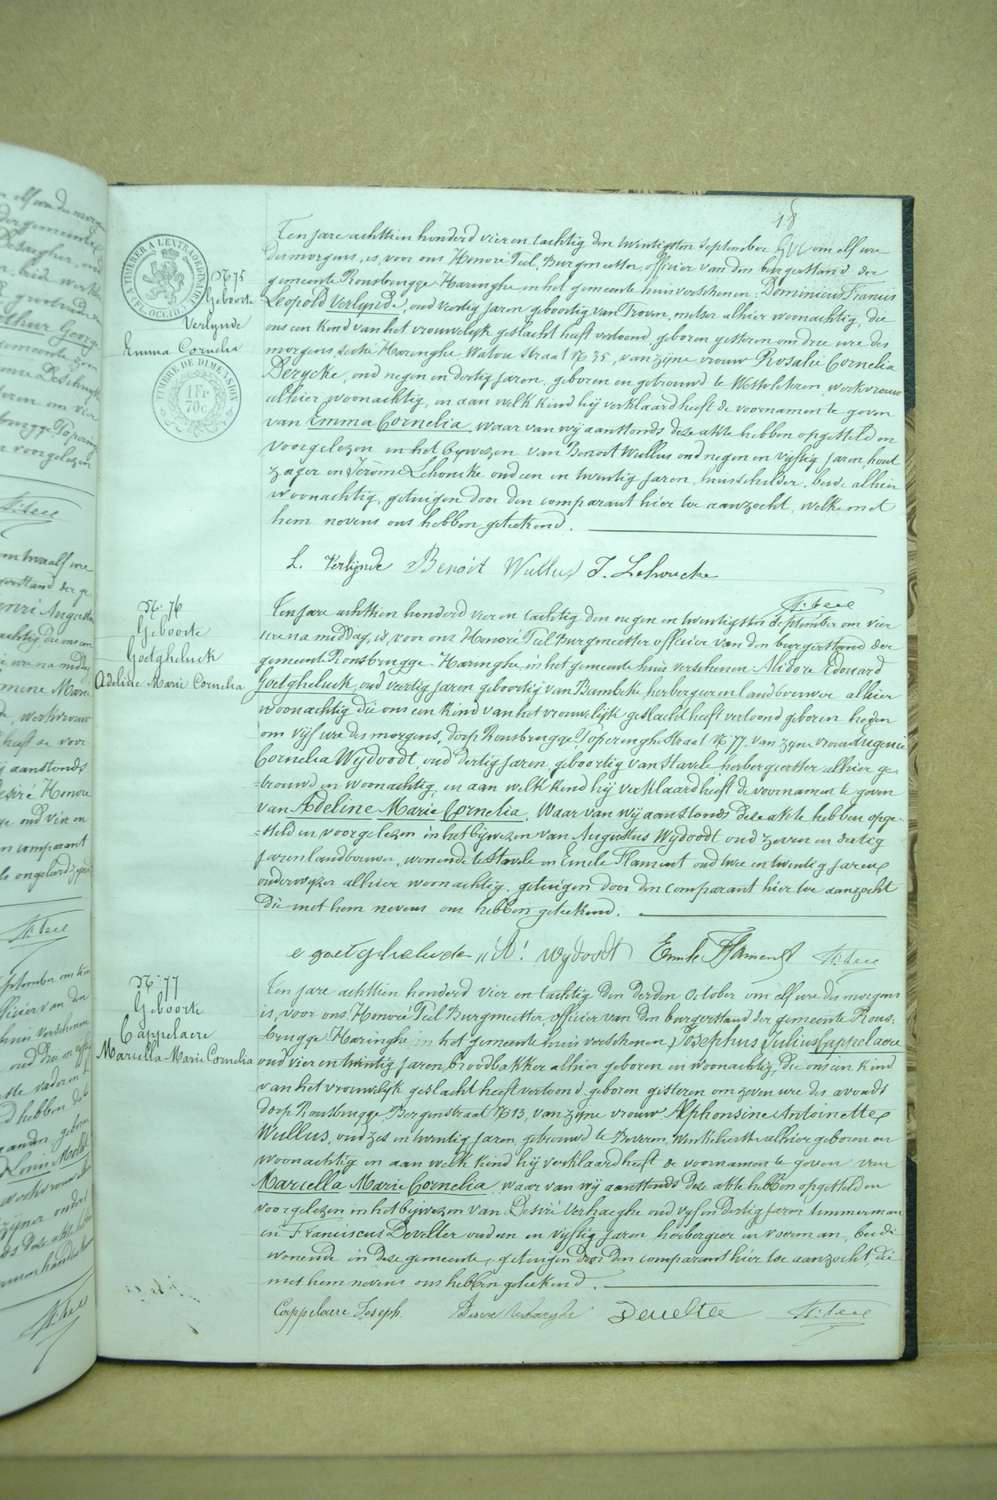 18
Ten jare achttien honderd vier en tachtig den twintigsten September om elf ure
des morgens, is, voor ons Honoré Teel, Burgmeester, officier van den burgerstand der
gemeente Rousbrugge Haringhe in het gemeente huis verschenen Dominicus Francis
Leopold Verlynde, oud veertig jaren geboortig van Proven, metser alhier woonachtig, die
ons een kind van het vrouwelijk geslacht heeft vertoond, geboren gisteren om drie ure des
morgens sectie Haringhe, Watou straat No 35, van zijne vrouw Rosalie Cornelia
Derycke, oud negen en dertig jaren, geboren en getrouwd te Westvleteren, werkvrouw
alhier woonachtig, en aan welk kind hij verklaard heeft de voornamen te geven
van Emma Cornelia, waar van wij aanstonds deze akte hebben opgesteld en
voorgelezen in het bijwezen van Benoit Wullus oud negen en vijftig jaren, hout
zager en Jerome Lehoucke oud een en twintig jaren, huisschilder, beide alhier
woonachtig, getuigen door den comparant hier toe aanzocht, welke met
hem nevens ons hebben geteekend.
L. Verlynde Benoit Wullus J. Lehoucke
H. Teel
No 75
Geboorte
Verlynde
Emma Cornelia
A TIMBRER A L'EXTRAORDINAIRE
TIMBRE DE DIMENSION
1 Fr
70c
Ten jare achttien honderd vier en tachtig den negen en twintigsten September om vier
ure na middag, is, voor ons Honoré Teel Burgmeester officier van den burgerstand der
gemeente Rousbrugge-Haringhe, in het gemeente huis verschenen Alidore Edouard
Goetgheluck, oud veertig jaren geboortig van Bambeke, herbergier en landbouwer alhier
woonachtig die ons een kind van het vrouwelijk geslacht heeft vertoond geboren heden
om vijf ure des morgens, dorp Rousbrugge, Poperinghe straat No 77, van zijne vrouw Eugenie
Cornelia Wydoodt, oud dertig jaren, geboortig van Stavele herbergierster alhier ge
trouwd en woonachtig, en aan welk kind hij verklaard heeft de voornamen te geven
van Adeline Marie Cornelia, Waar van wij aanstonds deze akte hebben opge-
steld en voorgelezen in het bijwezen van Augustus Wydoodt oud zeven en dertig
jaren landbouwer, wonende te Stavele en Emile Flament oud twee en twintig jaren
onderwijzer alhier woonachtig, getuigen door den comparant hier toe aanzocht
die met hem nevens ons hebben geteekend.
A. Wydoodt Emile Flament H. Teel
No 76
Geboorte
Goetgheluck
Adeline Marie Cornelia
Ten jare achttien honderd vier en tachtig den derden October om elf ure des morgens
is, voor ons Honoré Teel Burgmeester, officier van den burgerstand der gemeente Rous-
brugge Haringhe, in het gemeente huis verschenen Josephus Julius Cappelaere
oud vier en twintig jaren, broodbakker alhier geboren en woonachtig, die ons een kind
van het vrouwelijk geslacht heeft vertoond, geboren gisteren om zeven ure des avonds
dorp Rousbrugge, Bergenstraat No 13, van zijne vrouw Alphonsine Antoinette
Wullus, oud zes en twintig jaren, getrouwd te Beveren, winkelierster alhier geboren en
woonachtig en aan welk kind hij verklaard heeft de voornamen te geven van
Marcella Marie Cornelia, waar van wij aanstonds deze akte hebben opgesteld en
voorgelezen in het bijwezen van Desiré Verhaeghe oud vijf en dertig jaren timmerman
en Franciscus Develter oud een en vijftig jaren herbergier en voerman, beide
wonende in deze gemeente, getuigen door den comparant hier toe aanzocht, die
met hem nevens ons hebben geteekend.
Cappelaere Joseph. Verhaeghe Develter H. Teel
No 77
Geboorte
Cappelaere
Marcella Marie Cornelia